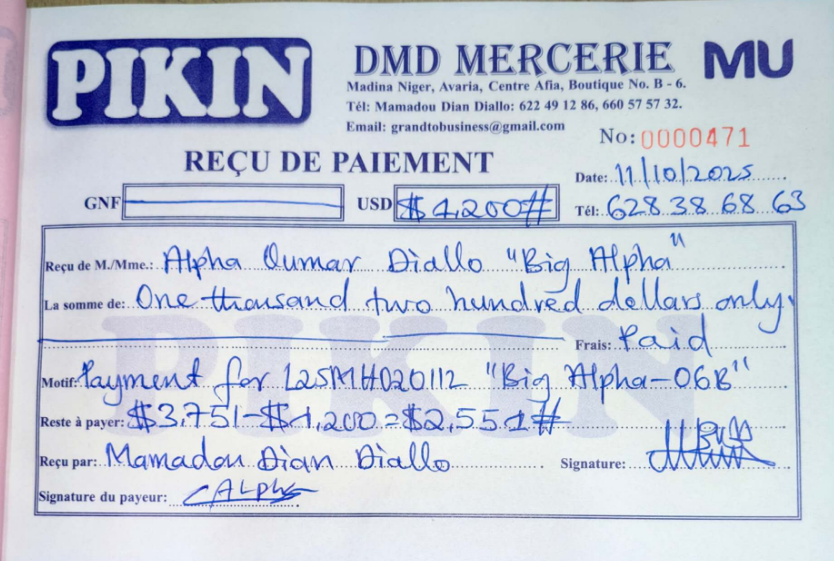 PIKIN
DMD MERCERIE
MU
Madina Niger, Avaria, Centre Afia, Boutique No. B - 6.
Tél: Mamadou Dian Diallo: 622 49 12 86, 660 57 57 32.
Email: grandtobusiness@gmail.com
No: 0000471
REÇU DE PAIEMENT
Date: 11/10/2025
GNF
USD $1,200#
Tél: 628 38 68 63
Reçu de M./Mme.: Alpha Oumar Diallo "Big Alpha"
La somme de: One thousand two hundred dollars only.
Frais: Paid
Motif: Payment for L25MH020112 "Big Alpha-06B"
Reste à payer: $3,751-$1,200=$2,551#
Reçu par: Mamadou Dian Diallo Signature:
Signature du payeur: Alpha
PIKIN